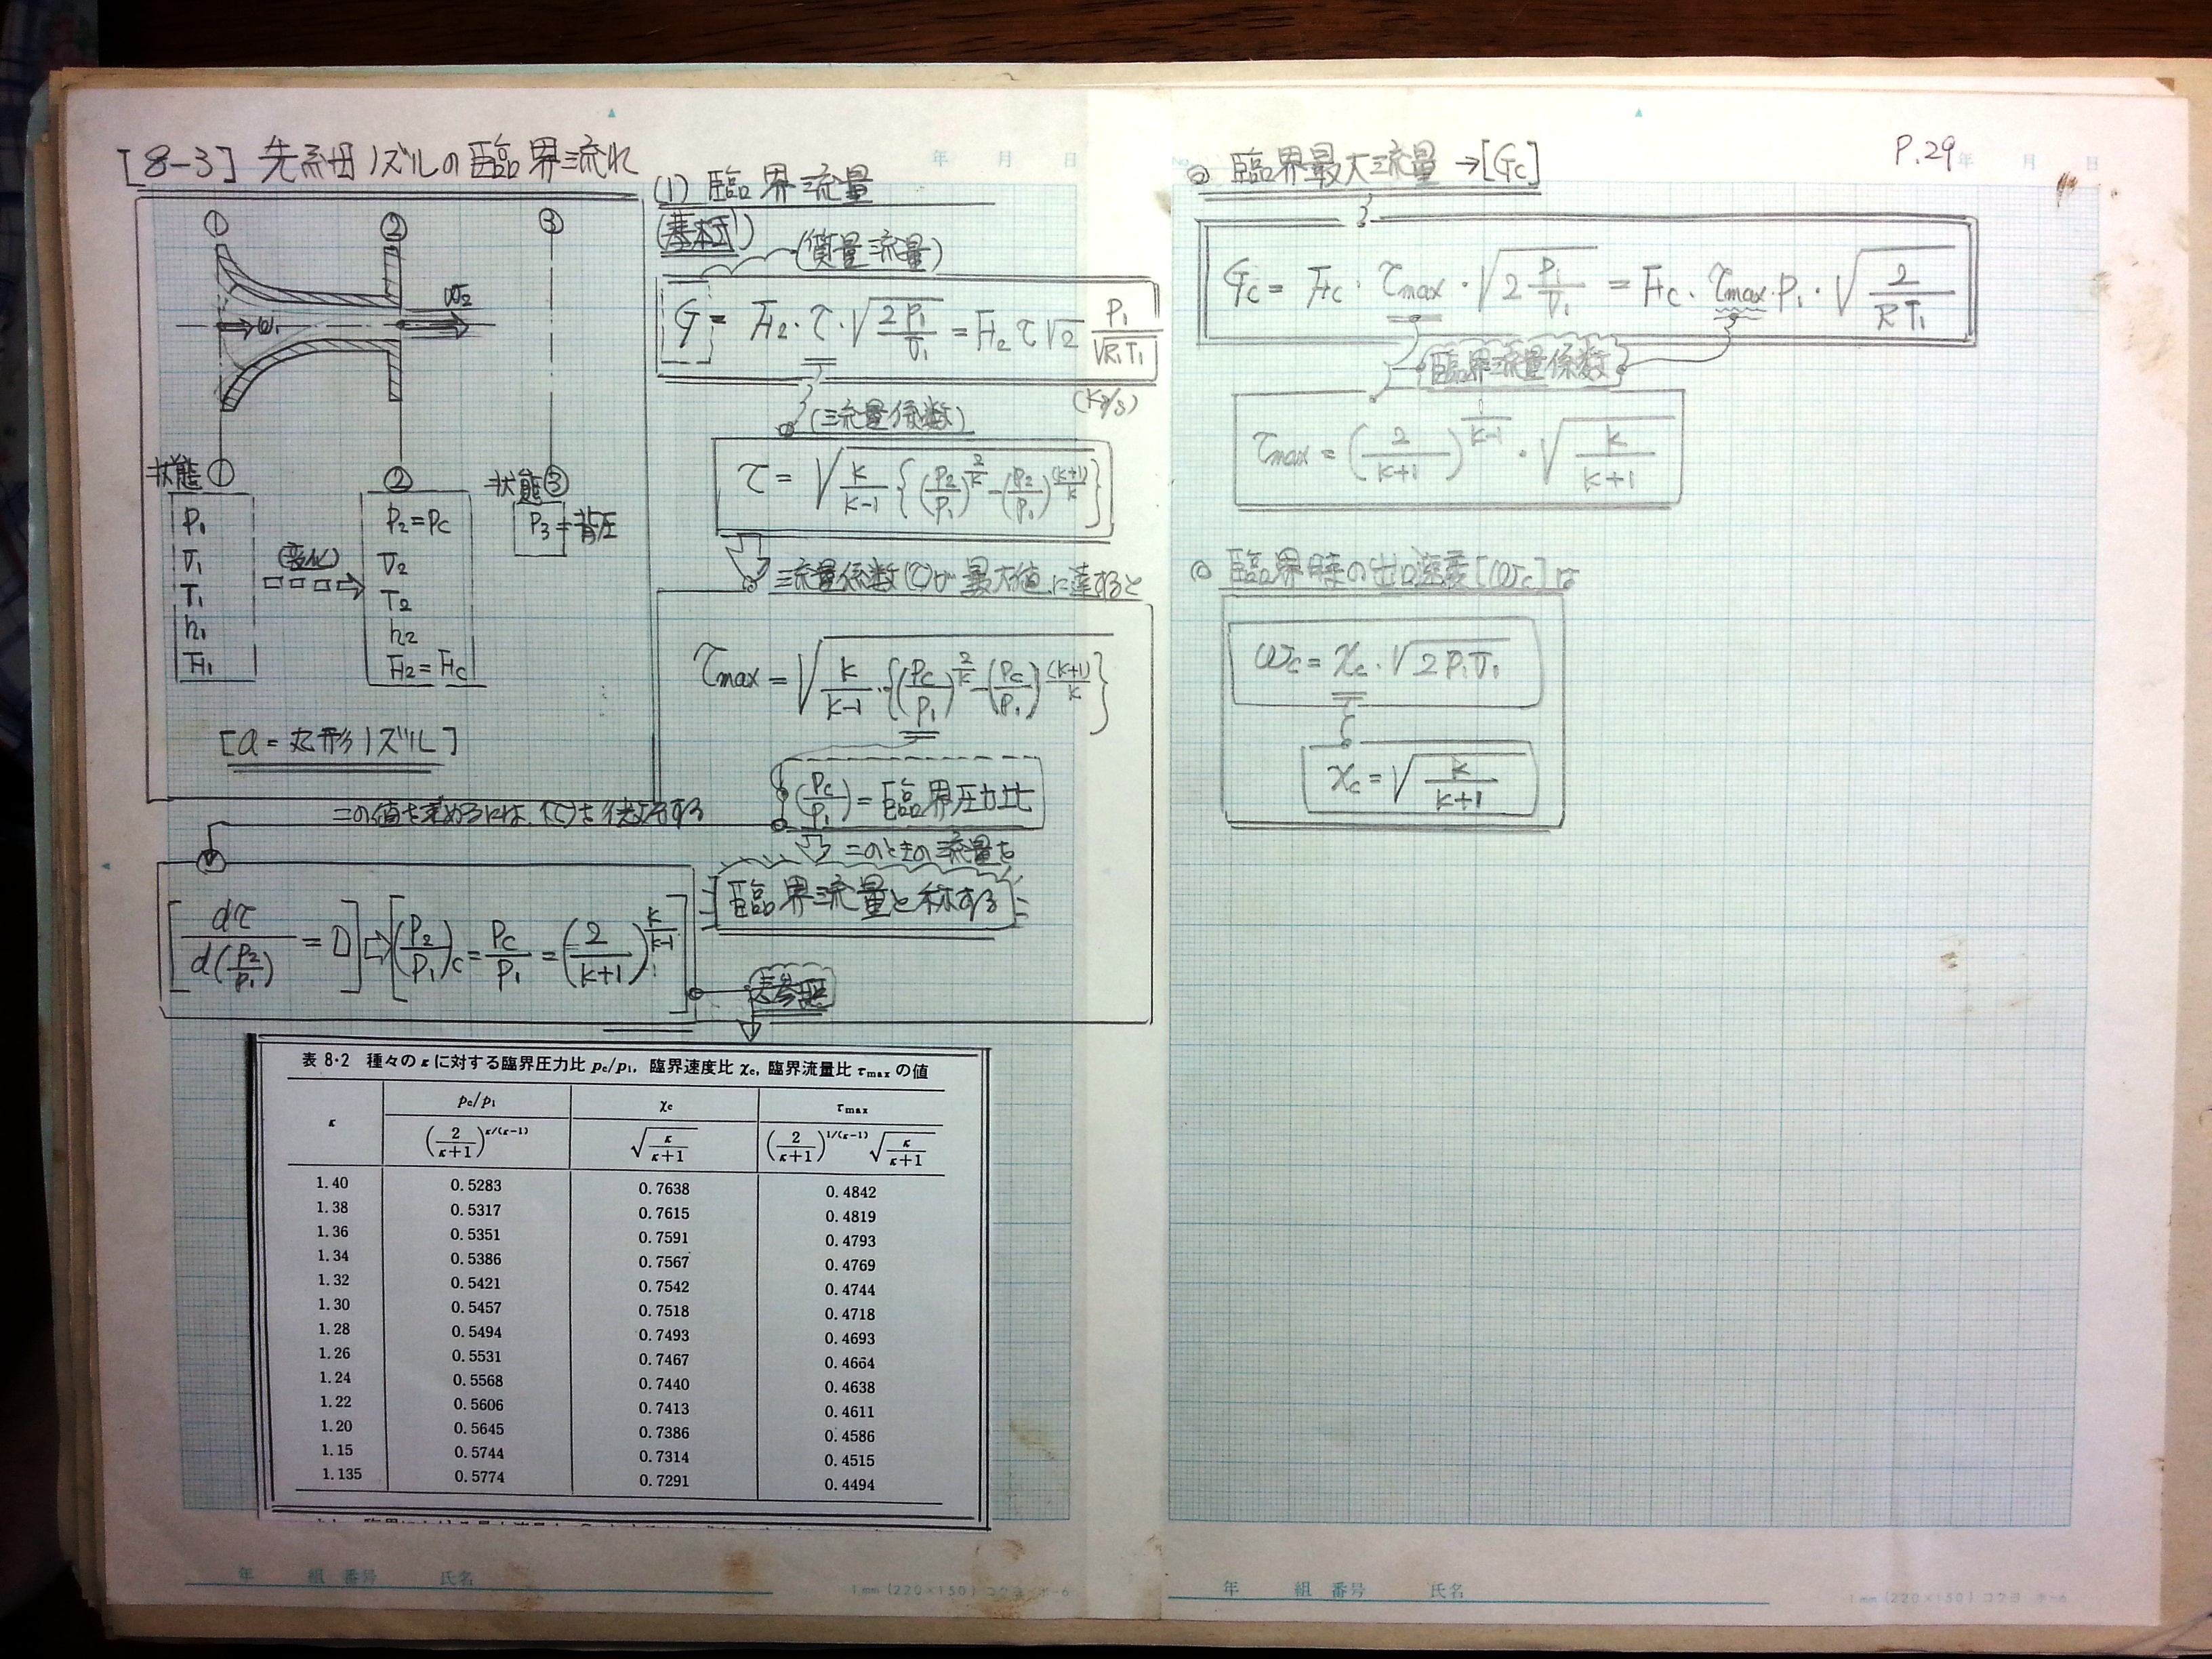 [8-3] 先細ノズルの臨界流れ
① ② ③
w₁ w₂
状態① ② 状態③
P₁ P₂=Pc P₃=背圧
v₁ v₂
(変化)
T₁ T₂
h₁ h₂
F₁ F₂=Fc
[a=丸形ノズル]
(1) 臨界流量
(基本式)
(質量流量)
G = F₂・τ・√(2P₁/v₁) = F₂ τ √2 P₁/√(R₁T₁)
(Kg/s)
(流量係数)
τ = √(K/(K-1) {(P₂/P₁)^(2/K) - (P₂/P₁)^((K+1)/K)})
流量係数(τ)が最大値に達すると
τmax = √(K/(K-1)・{(Pc/P₁)^(2/K) - (Pc/P₁)^((K+1)/K)})
(Pc/P₁) = 臨界圧力比
このときの流量を
臨界流量と称する
この値を求めるには、(τ)を微分する
[dτ/d(P₂/P₁) = 0] ⇨ [(P₂/P₁)c = Pc/P₁ = (2/(K+1))^(K/(K-1))]
表参照
表 8・2 種々の κ に対する臨界圧力比 pc/p₁, 臨界速度比 χc, 臨界流量比 τmax の値
κ pc/p₁ χc τmax
(2/(κ+1))^(κ/(κ-1)) √(κ/(κ+1)) (2/(κ+1))^(1/(κ-1)) √(κ/(κ+1))
1.40 0.5283 0.7638 0.4842
1.38 0.5317 0.7615 0.4819
1.36 0.5351 0.7591 0.4793
1.34 0.5386 0.7567 0.4769
1.32 0.5421 0.7542 0.4744
1.30 0.5457 0.7518 0.4718
1.28 0.5494 0.7493 0.4693
1.26 0.5531 0.7467 0.4664
1.24 0.5568 0.7440 0.4638
1.22 0.5606 0.7413 0.4611
1.20 0.5645 0.7386 0.4586
1.15 0.5744 0.7314 0.4515
1.135 0.5774 0.7291 0.4494
年 月 日
年 組 番号 氏名
1mm(220×150) コクヨ ホ-6
P.29
No. 年 月 日
◎ 臨界最大流量 →[Gc]
Gc = Fc・τmax・√(2 P₁/v₁) = Fc・τmax・P₁・√(2/(RT₁))
臨界流量係数
τmax = (2/(K+1))^(1/(K-1))・√(K/(K+1))
◎ 臨界時の出口速度[wc]は
wc = χc・√(2P₁v₁)
χc = √(K/(K+1))
年 組 番号 氏名
1mm(220×150) コクヨ ホ-6